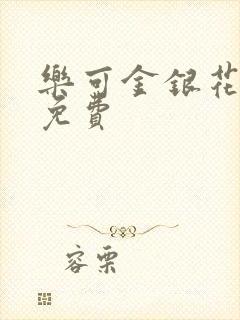 樂可金銀花
免費
容栗